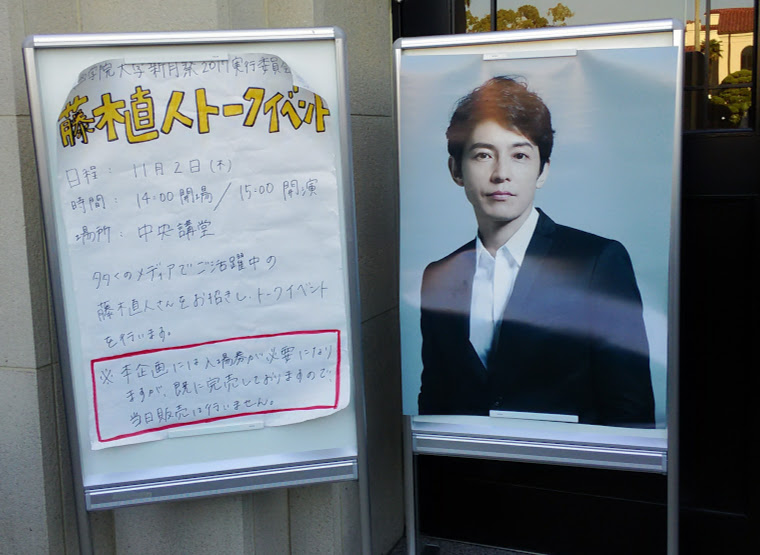 学院大学新月祭2017実行委員会
藤木直人トークイベント
日程： 11月2日(木)
時間： 14:00開場／15:00 開演
場所： 中央講堂
多くのメディアでご活躍中の
藤木直人さんをお招きし、トークイベント
を行います。
※ 本企画には入場券が必要になり
ますが、既に完売しておりますので、
当日販売は行いません。